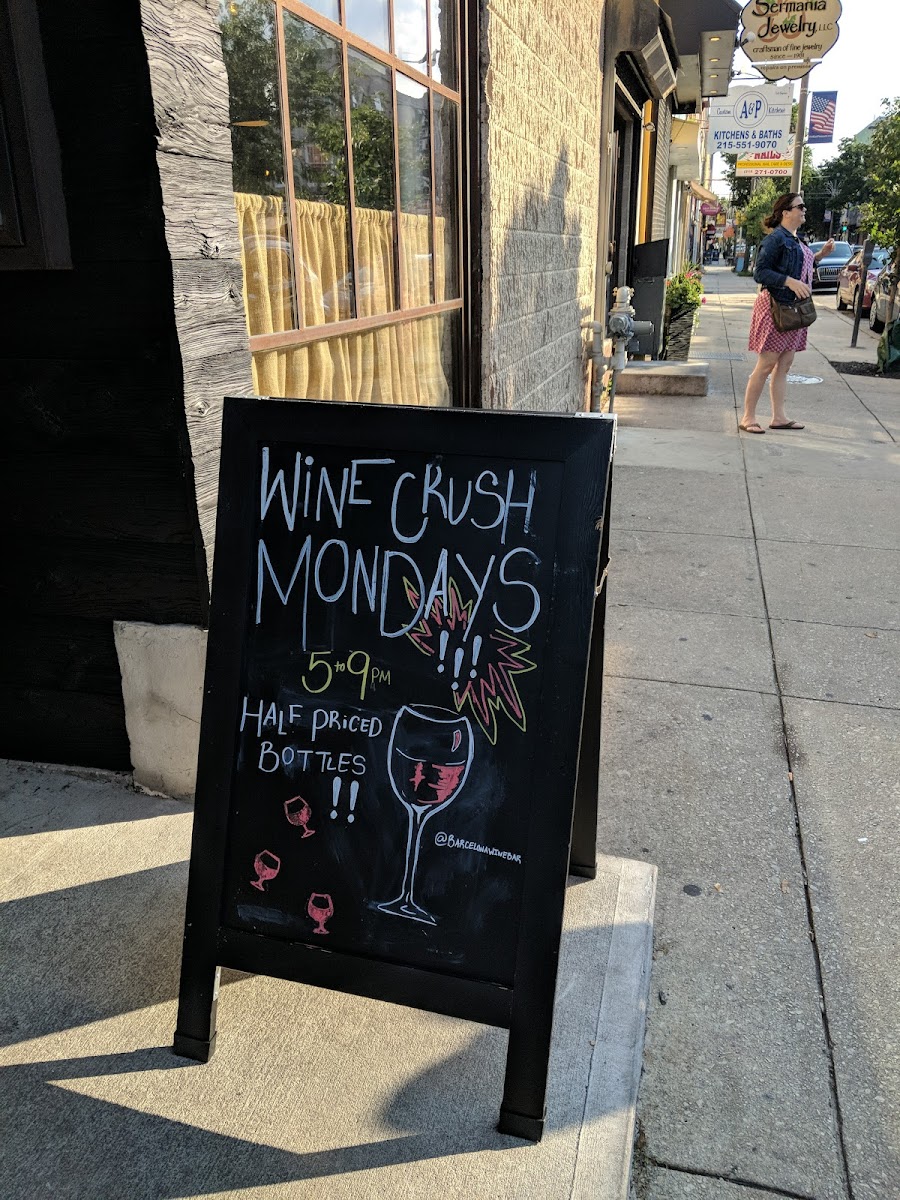 Sermania
Jewelry, LLC
craftsman of fine jewelry
A&P
Custom Kitchens
KITCHENS & BATHS
215-551-9070
NAILS
271-0700
WINE CRUSH
MONDAYS
!!!
5 to 9 PM
HALF PRICED
BOTTLES
!!
@BARCELONAWINEBAR